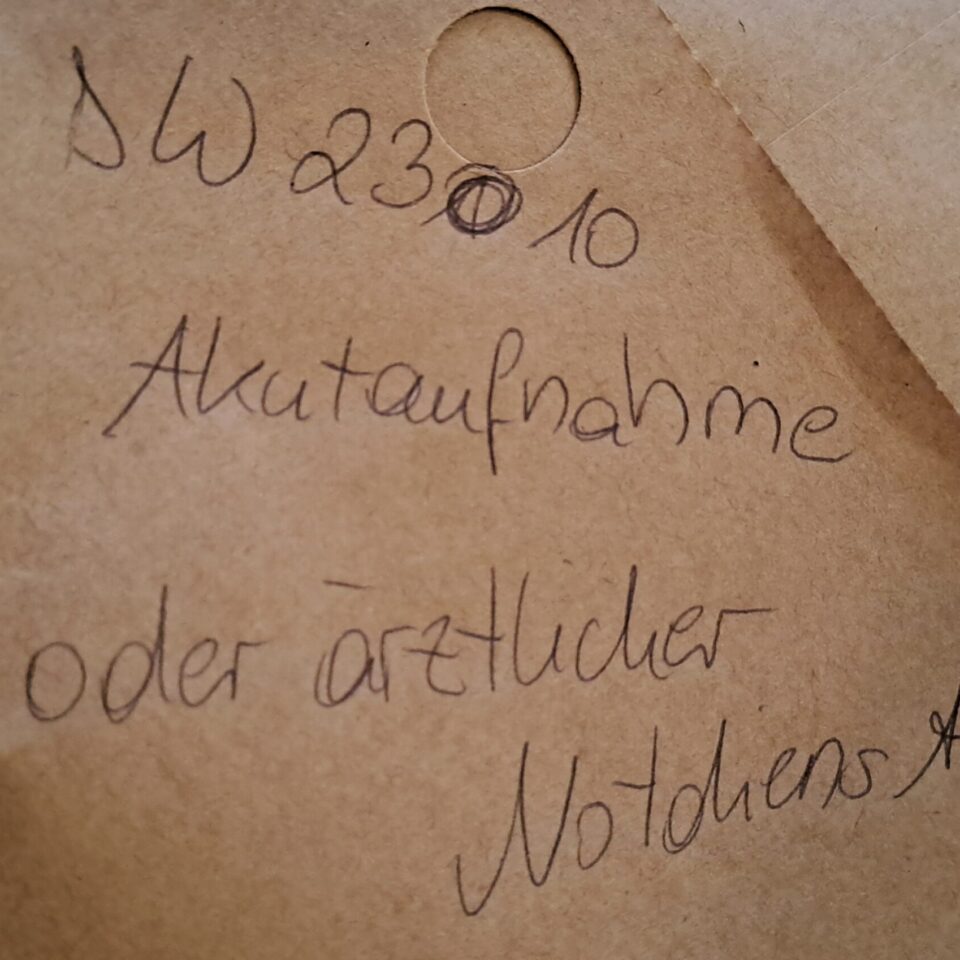 DW 23 10
Akutaufnahme
oder ärztlicher
Notdienst